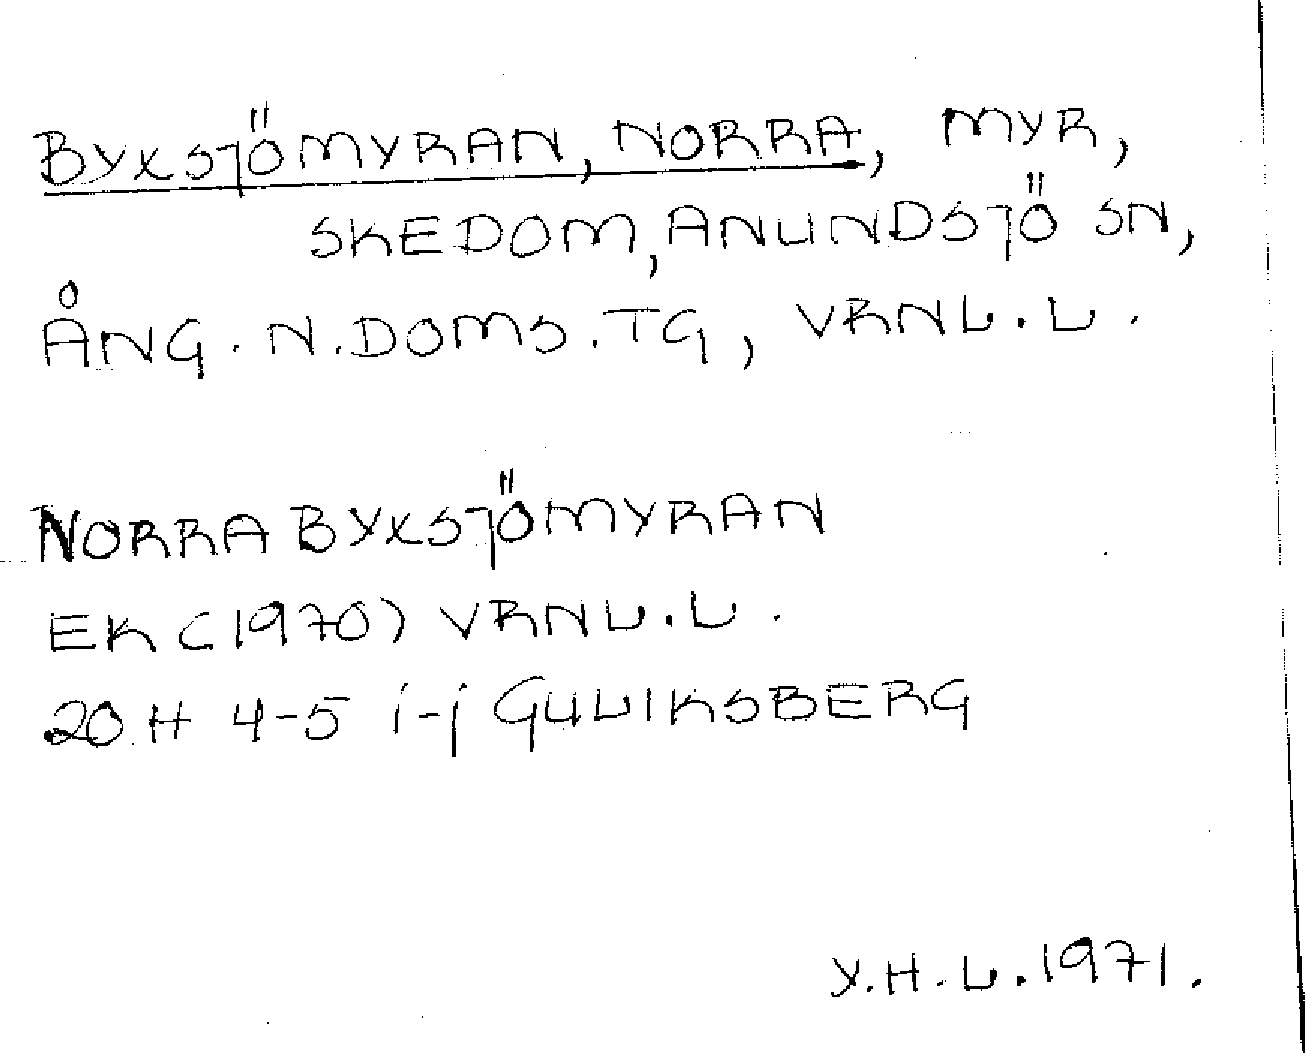 BYXSJÖMYRAN, NORRA, MYR,
SKEDOM, ANUNDSJÖ SN,
ÅNG. N. DOMS. TG, VRNL. L.
NORRA BYXSJÖMYRAN
EK (1970) VRNL. L.
20 H 4-5 i-j GULLIKSBERG
Y. H. L. 1971.